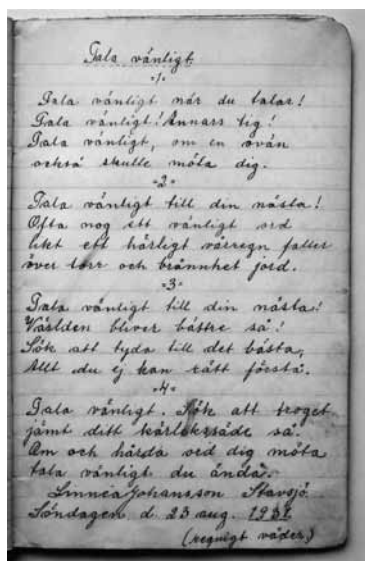 Tala vänligt.
-1-
Tala vänligt när du talar!
Tala vänligt! Annars tig!
Tala vänligt, om en ovän
också skulle möta dig.
-2-
Tala vänligt till din nästa!
Ofta nog ett vänligt ord
likt ett härligt vårregn faller
över torr och brännhet jord.
-3-
Tala vänligt till din nästa!
Världen bliver bättre så!
Sök att tyda till det bästa,
Allt du ej kan rätt förstå.
-4-
Tala vänligt. Sök att troget
jämt ditt kärleksäde så.
Om och hårda ord dig möta
tala vänligt du ändå.
Linnéa Johansson Stavsjö.
Söndagen d. 23 aug. 1931.
(regnigt väder.)